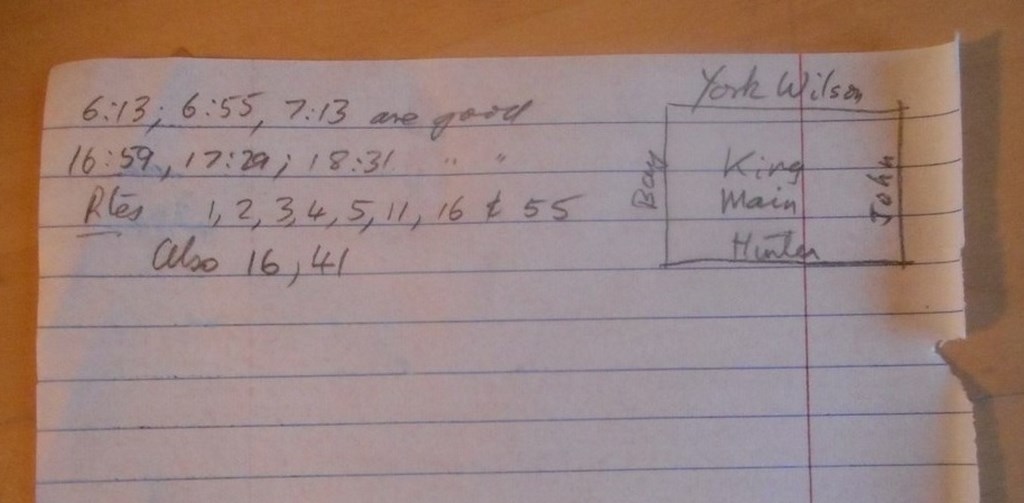 6:13; 6:55, 7:13 are good
16:59, 17:29; 18:31 " "
Rtes 1, 2, 3, 4, 5, 11, 16 & 55
Also 16, 41
York Wilson
Bay
King
Main
John
Hunter